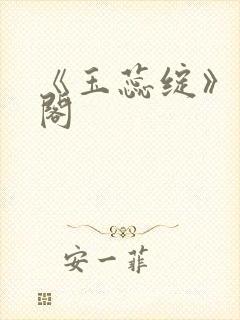 《玉蕊绽》
阁
安一菲